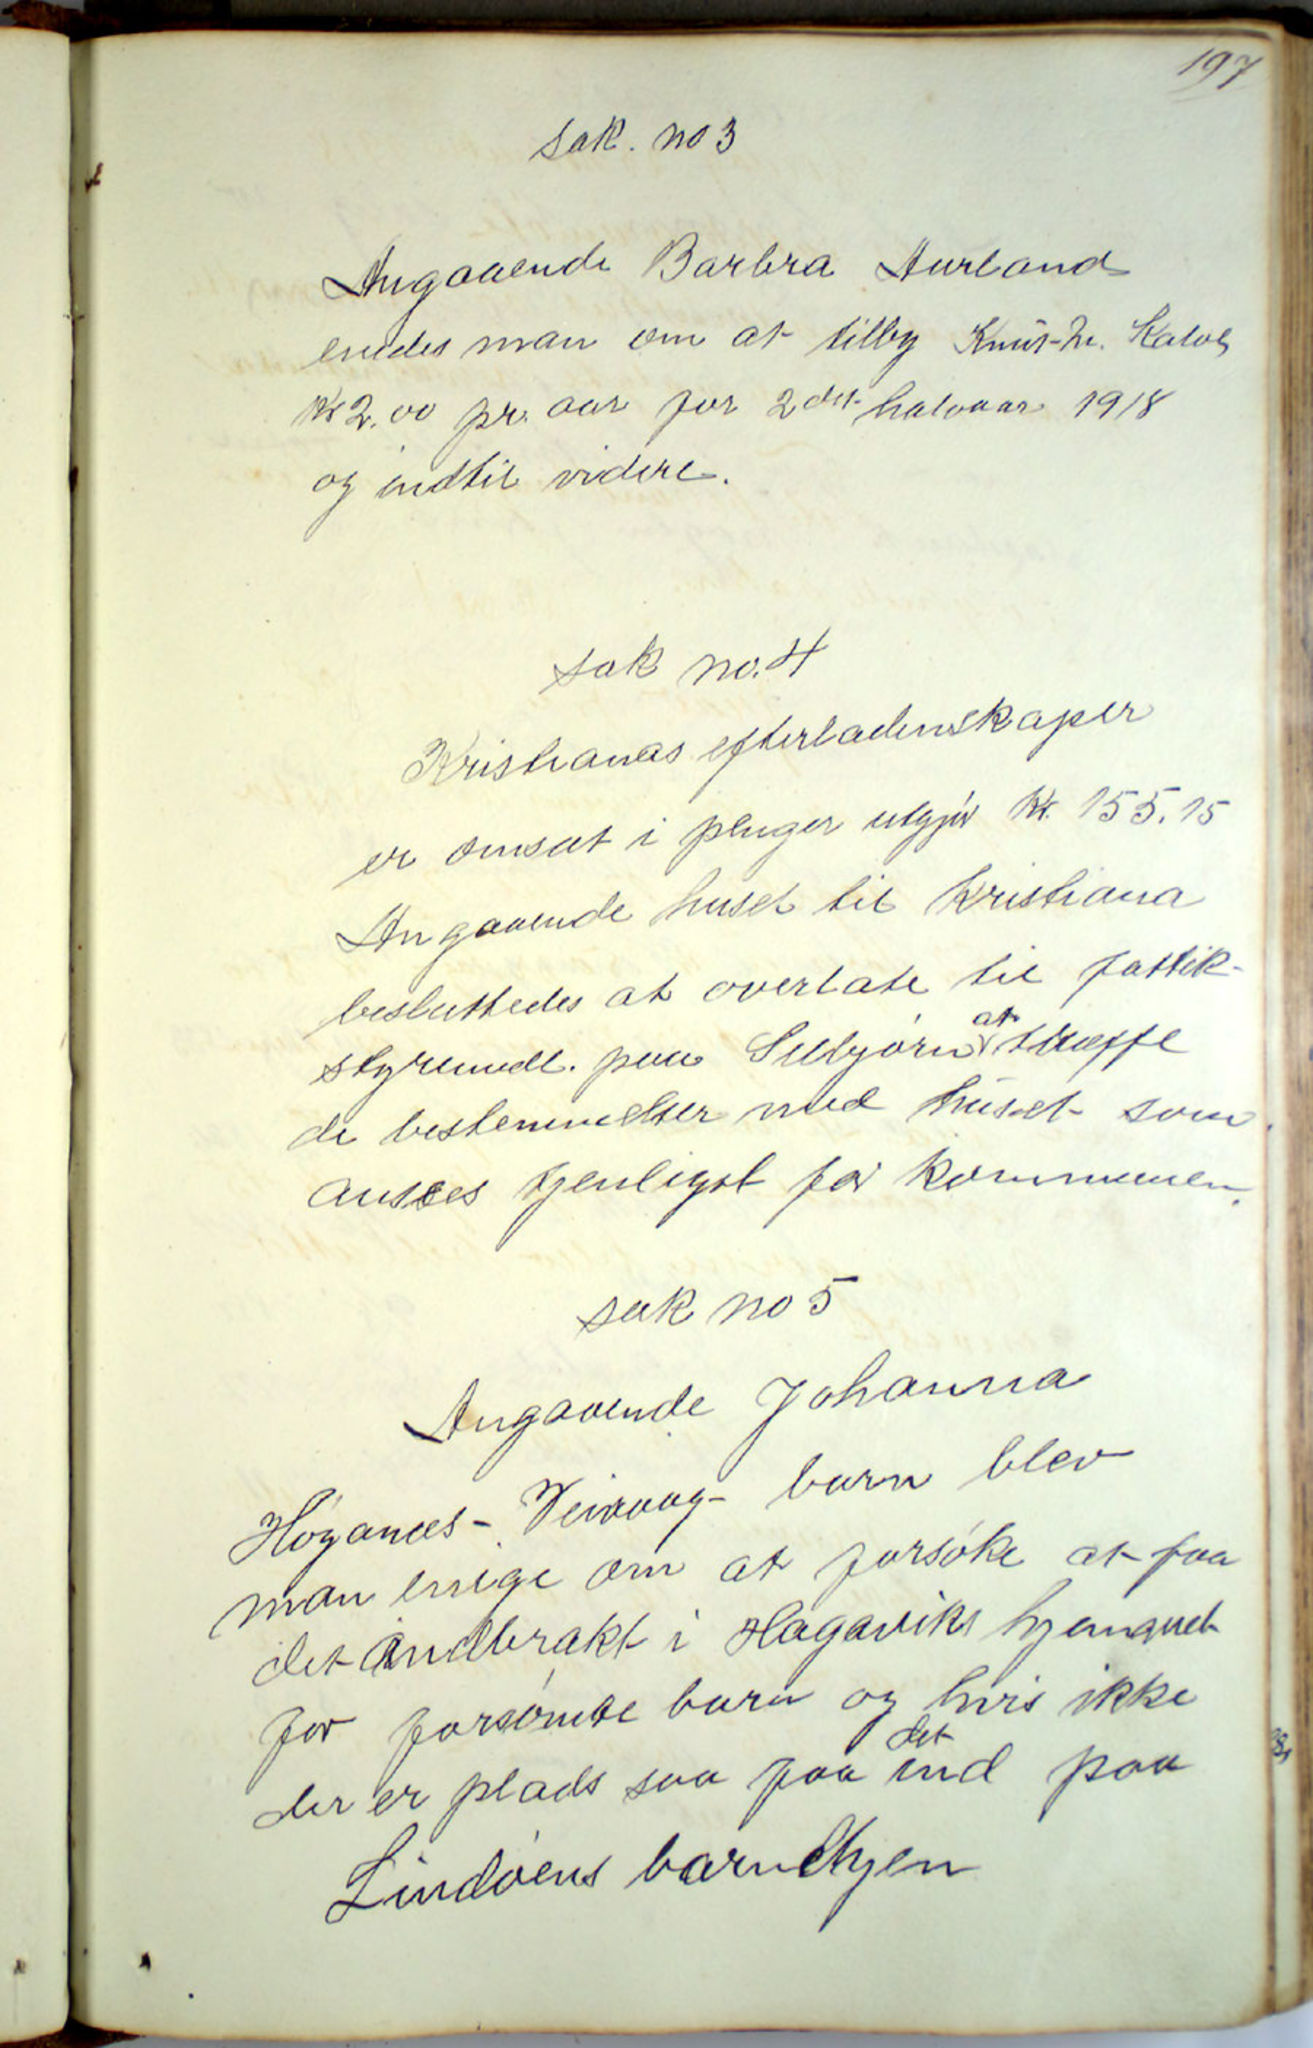 197
sak. no 3
Angaaende Barbra Aurland
enedes man om at tilby Knut
Kr 2.00 pr. aar for 2det halvaar 1918
og indtil videre.
sak no. 4
Kristianas efterladenskaper
er omsat i penger utgjør Kr. 155.15
Angaaende huset til Kristiana
besluttedes at overlate til fattik-
styremedl. paa Selbjørn at træffe
de bestemmelser med huset som
ansees tjenligst for kommunen.
sak no 5
Angaaende Johanna
Høganes- barn blev
man enige om at forsøke at faa
det indbrakt i Hagaviks hjemmet
for forsømte barn og hvis ikke
der er plads saa faa det ind paa
Lindøens barnehjem